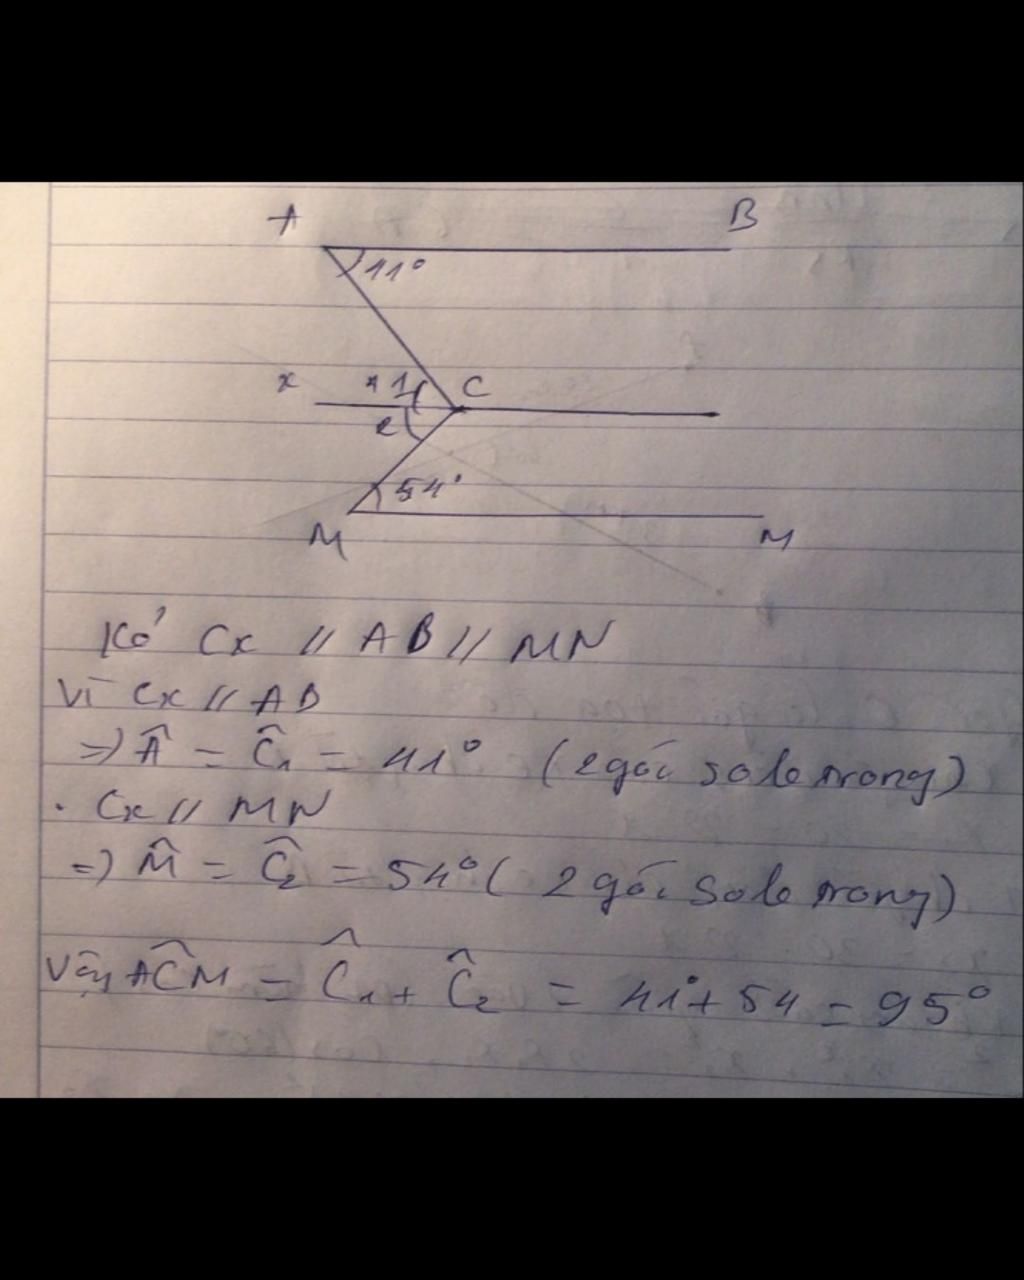 A B
41°
x 1 C
2
54°
M N
Kẻ Cx // AB // MN
Vì Cx // AB
=> Â = Ĉ₁ = 41° (2 góc so le trong)
. Cx // MN
=> M̂ = Ĉ₂ = 54° ( 2 góc so le trong)
Vậy AĈM = Ĉ₁ + Ĉ₂ = 41° + 54 = 95°